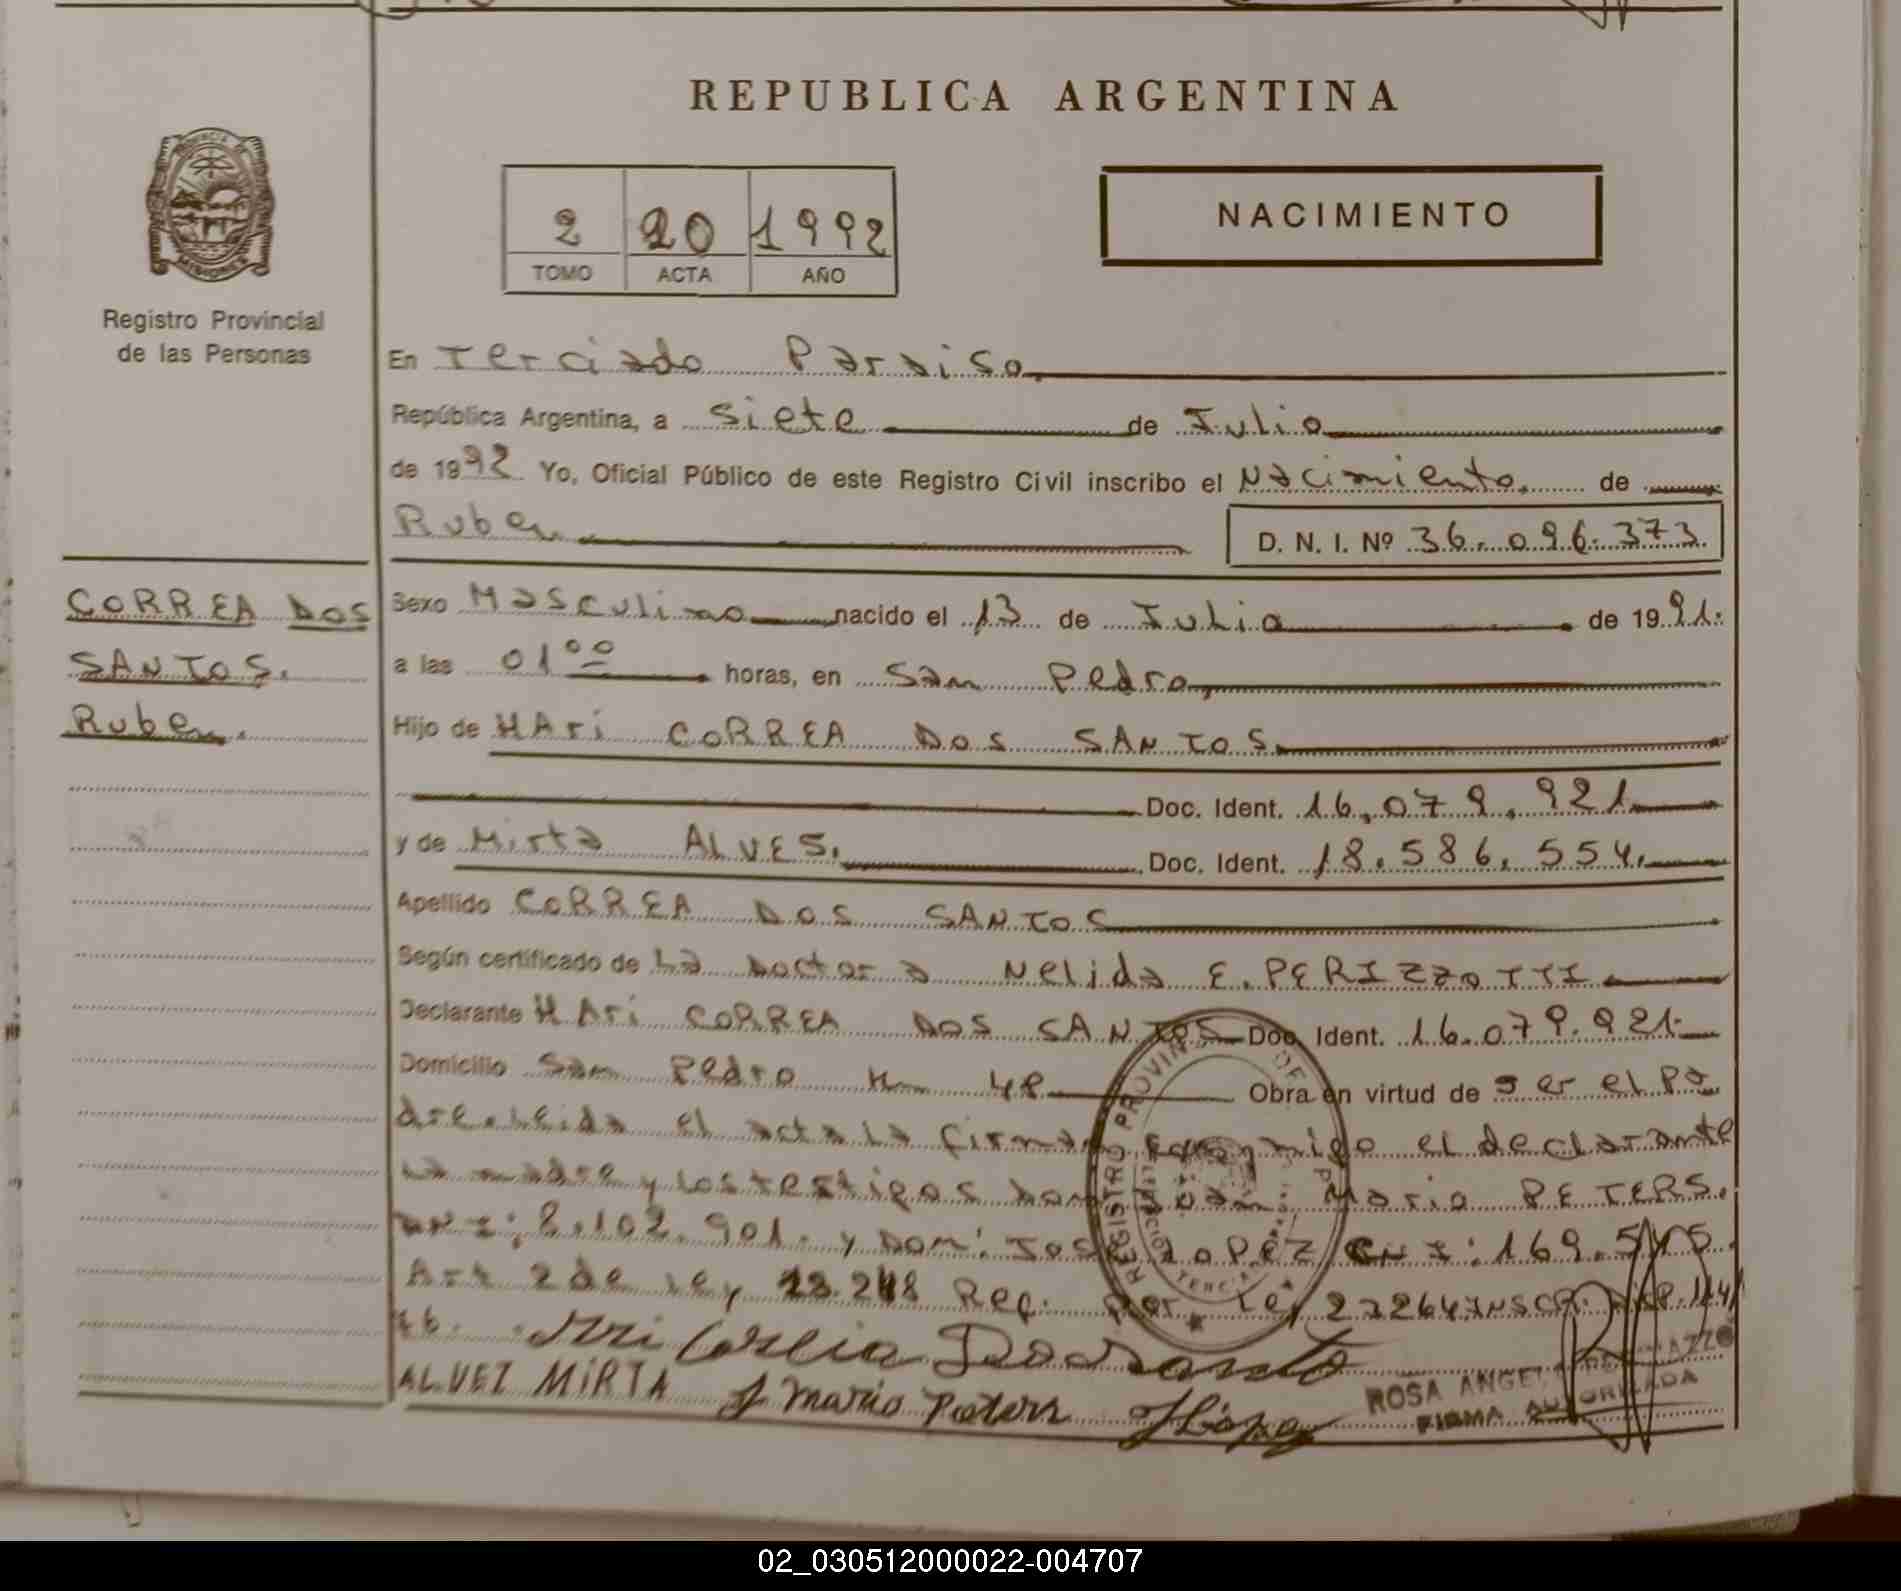 REPUBLICA ARGENTINA
PROVINCIA DE
MISIONES
Registro Provincial
de las Personas
2 20 1992
TOMO ACTA AÑO
NACIMIENTO
En Terciado Paraiso.
República Argentina, a siete de Julio
de 1992 Yo, Oficial Público de este Registro Civil inscribo el Nacimiento. de
Ruben
D. N. I. Nº 36.096.373
CORREA DOS
SANTOS.
Ruben.
Sexo Masculino nacido el 13 de Julio de 1991.
a las 01⁰⁰ horas, en San Pedro,
Hijo de HAri CORREA DOS SANTOS
Doc. Ident. 16.079.921
y de Mirta ALVES. Doc. Ident. 18.586.554.
Apellido CORREA DOS SANTOS
Según certificado de La Doctora Nelida E. PERIZZOTTI
Declarante HAri CORREA DOS SANTOS Doc. Ident. 16.079.921
Domicilio San Pedro Km 48 Obra en virtud de ser el Pa
dre. Leida el acta la firman conmigo el declarante
la madre y los testigos Don Juan Mario PETERS.
DNI: 8.102.901. y Don: José LoPEZ 169.545.
Art 2 de ley 23.248 Reg. Por Ley 22264 INSCR. DISP. 114/
REGISTRO PROVINCIAL DE
ALVEZ MIRTA J Mario Peters J López
ROSA ANGEL
FIRMA AUTORIZADA
02_030512000022-004707